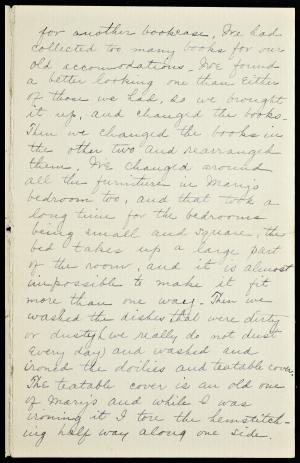 for another bookcase, We had
collected too many books for our
old accomodations. We found
a better looking one than either
of those we had, so we brought
it up, and changed the books.
Then we changed the books in
the other two and rearranged
them. We changed around
all the furniture in Mary's
bedroom too, and that took a
long time for the bedrooms
being small and square, the
bed takes up a large part
of the room, and it is almost
impossible to make it fit
more than one way. Then we
washed the dishes that were dirty
or dusty (we really do not dust
every day) and washed and
ironed the doilies and teatable cover.
The teatable cover is an old one
of Mary's and while I was
ironing it I tore the hemstitch-
ing half way along one side.